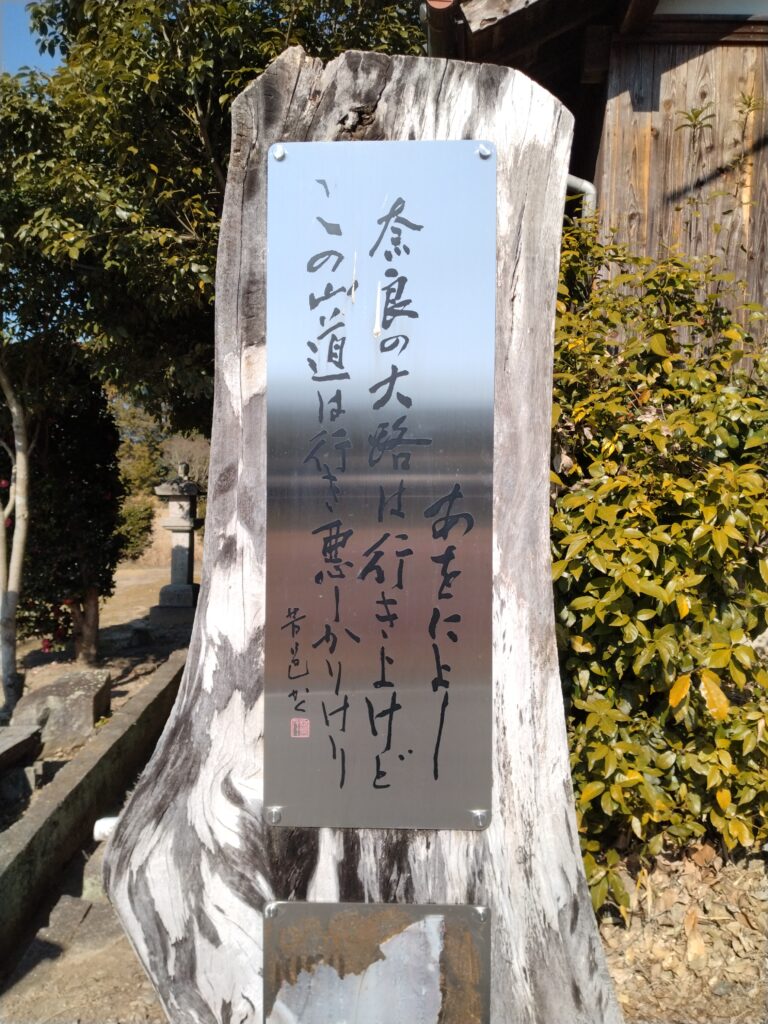 あをによし
奈良の大路は行きよけど
この山道は行き悪しかりけり
芳邑かく